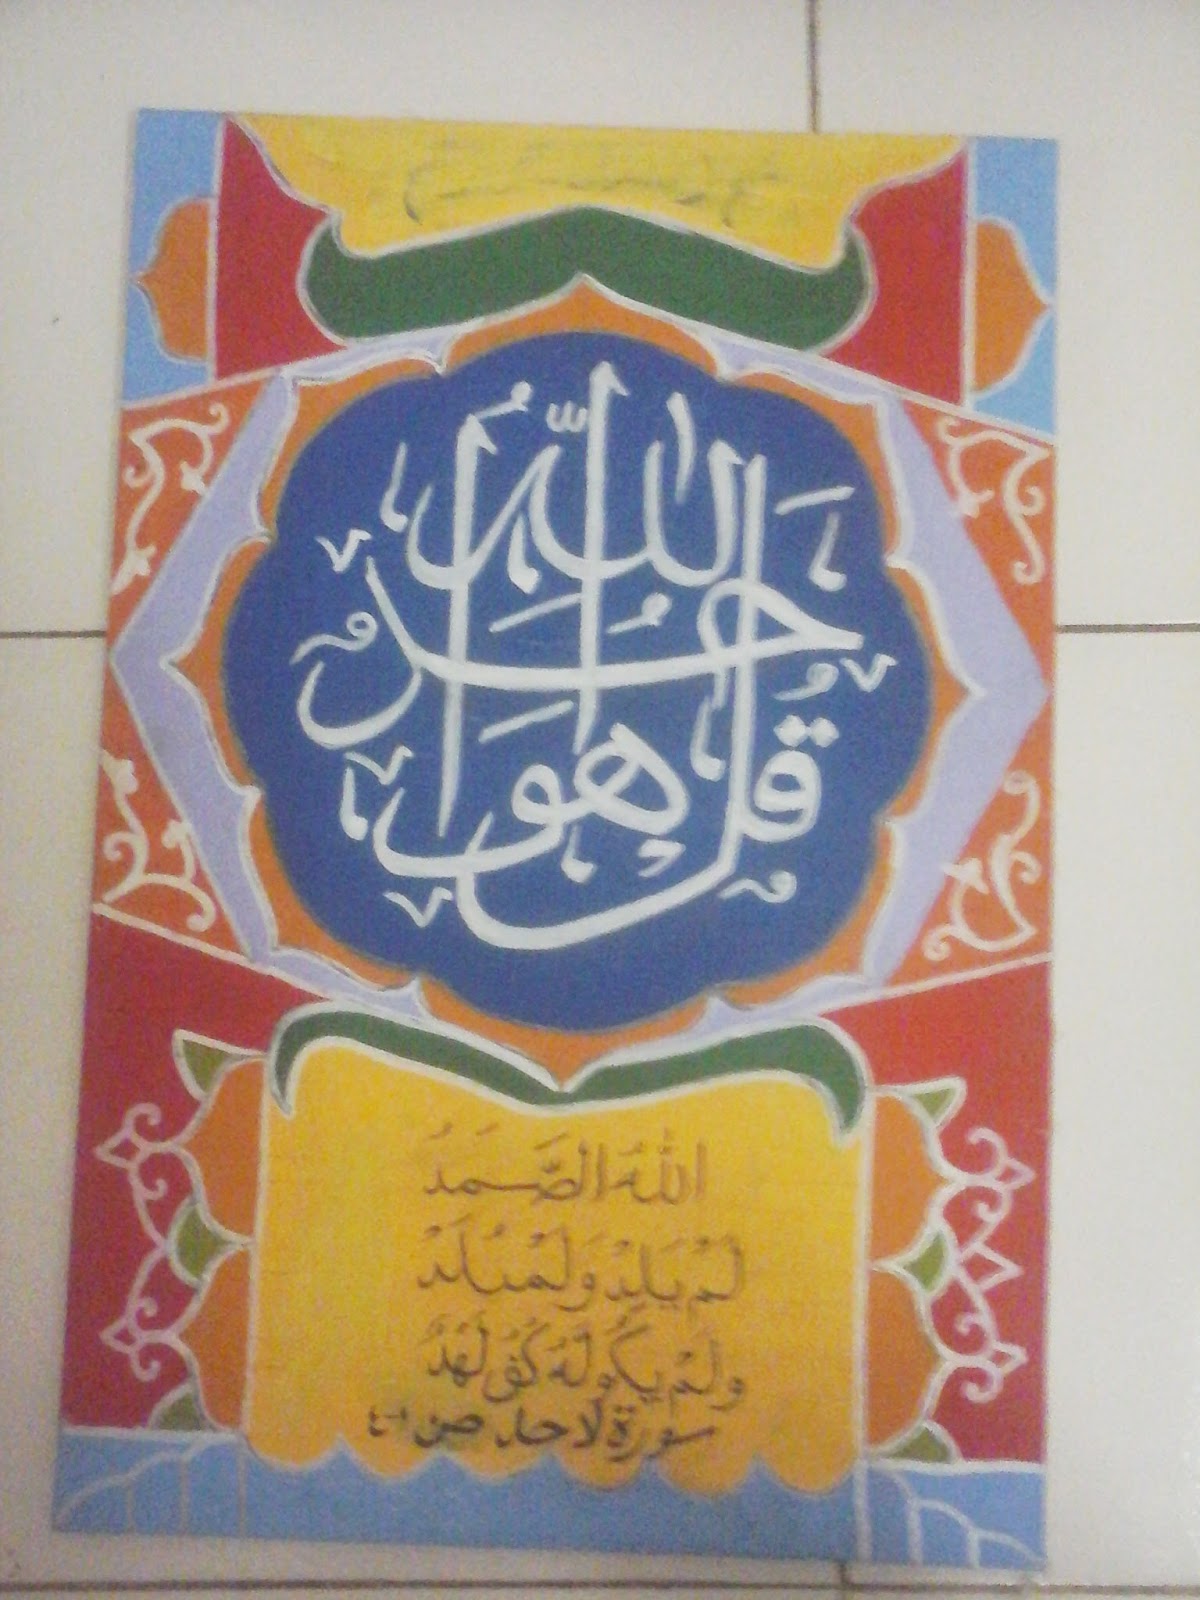 قُلْ هُوَ اللّٰهُ اَحَدٌ
اللهُ الصَّمَدُ
لَمْ يَلِدْ وَلَمْ يُلَدْ
وَلَمْ يَكُو لَهُ كُفُ
سورة لاحد ١-٤